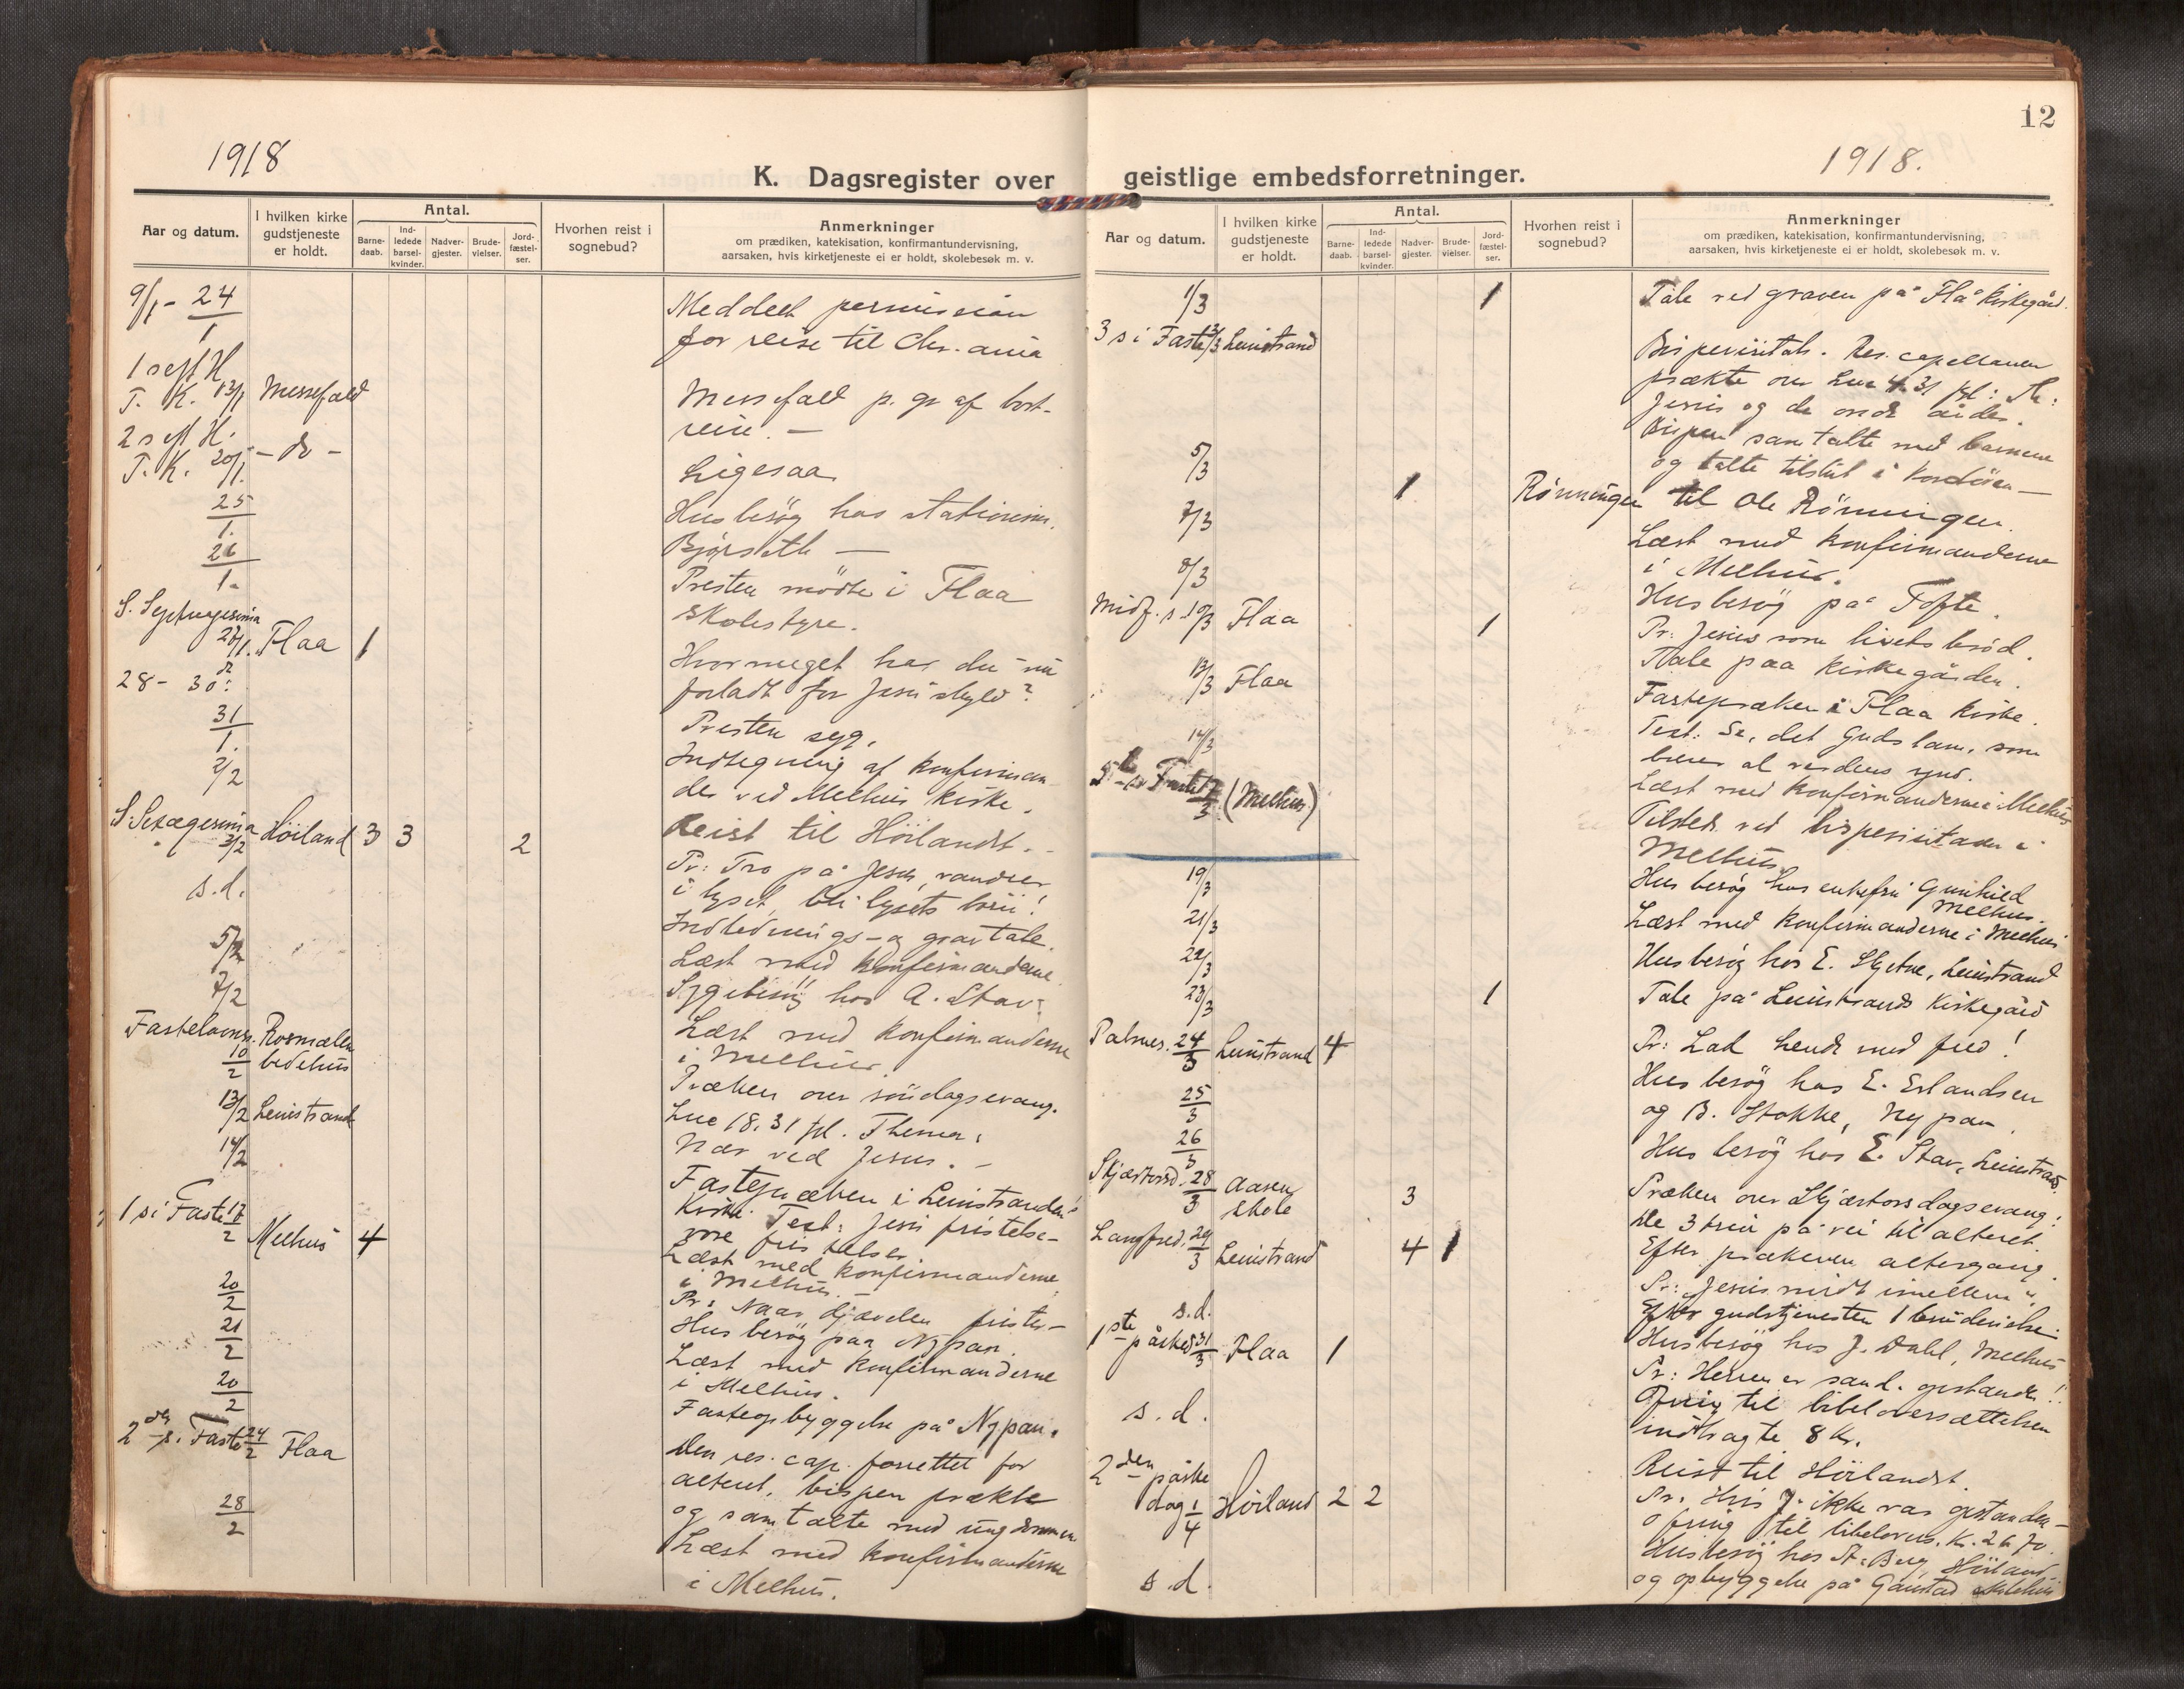 1918
K. Dagsregister over
Aar og datum.
I hvilken kirke gudstjeneste er holdt.
Antal.
Barne-daab.
Ind-ledede barsel-kvinder.
Nadver-gjester.
Brude-vielser.
Jord-fæstel-ser.
Hvorhen reist i sognebud?
Anmerkninger
om prædiken, katekisation, konfirmantundervisning,
aarsaken, hvis kirketjeneste ei er holdt, skolebesøk m. v.
9/1 - 24/1 Meddelt permission
for reise til Chr.ania
1 s eft H.
T. K. 13/1 Messefald Messefald p. gr af bort-
reise. —
2 s eft H.
T. K. 20/1 - do - Ligesaa
25/1. Husbesøg hos stationsm.
Bjørseth —
26/1. Presten mödte i Flaa
skolestyre.
S. Septuagesima
27/1. Flaa 1 Hvor meget har du
forladt for Jesu skyld?
28 - 30 Presten syg.
31/1. Indtegning af konfirman-
der ved Melhus kirke.
2/2 Reist til Höilandt.
S. Sexagesima
3/2 Höiland 3 3 2 Pr: Tro på Jesus, vandrer
i lyset, bli lysets börn!
s. d. Indlednings- og gravtale.
5/2 Læst med konfirmanderne
Sygebesög hos A. Stav.
7/2 Læst med konfirmanderne
i Melhus
Fastelavns. Rosmælen
10/2 bedehus Præken over söndagsevang.
Luc 18. 31 fl. Thema:
Nær ved Jesus. -
13/2 Leinstrand Fastepræken i Leinstrandens
Kirke. Text: Jesu fristelse-
vore fristelser.
14/2 Læst med konfirmanderne
i Melhus. -
1 s i Faste 17/2 Melhus 4 Pr: Naar djævelen frister-
20/2 Husbesög paa Nypan.
21/2 Læst med konfirmanderne
i Melhus.
20/2 Fasteopbyggelse på Nypan.
2den s. Faste 24/2 Flaa Den res. cap. forrettet for
alteret, bispen prækte
og samtalte med ungdommen
28/2 Læst med konfirmanderne
i Melhus.
12
1918.
geistlige embedsforretninger.
Aar og datum.
I hvilken kirke gudstjeneste er holdt.
Antal.
Barne-daab.
Ind-ledede barsel-kvinder.
Nadver-gjester.
Brude-vielser.
Jord-fæstel-ser.
Hvorhen reist i sognebud?
Anmerkninger
om prædiken, katekisation, konfirmantundervisning,
aarsaken, hvis kirketjeneste ei er holdt, skolebesøk m. v.
1/3 1 Tale ved graven på Flå kirkegård.
3 s i Faste 3/3 Leinstrand Bispevisitats. Res. capellanen
prækte over Luc 4. 31 fl: Th:
Jesus og de onde ånder.
Bispen samtalte med barnene
og talte tilslut i kordören —
5/3 1 Rønningen til Ole Rönningen.
7/3 Læst med konfirmanderne
i Melhus.
8/3 Husbesög på Tofte.
Midf. s. 10/3 Flaa 1 Pr: Jesus som livets bröd.
Tale paa kirkegården.
13/3 Flaa Fastepræken i Flaa kirke.
Text: Se, det Guds lam, som
bærer al verdens synd.
14/3 Læst med konfirmanderne i Melhus
5 s Faste 17/3 (Melhus) Tilstede ved bispevisitasen i
Melhus
19/3 Husbesög hos enkefru Gunhild
Melhus.
21/3 Læst med konfirmanderne i Melhus
22/3 Husbesög hos E. Skjetne, Leinstrand
23/3 1 Tale på Leinstrands kirkegård
Palmes. 24/3 Leinstrand 4 Pr: Lad hende med fred!
25/3 Husbesög hos E. Erlandsen
og B. Stokke, Nypan.
26/3 Husbesög hos E. Stav, Leinstrand.
Skjærtorsd. 28/3 Aasen
skole 3 Præken over Skjærtorsdagsevang:
de 3 trin på vei til alteret.
Efter prækenen altergang.
Langfred. 29/3 Leinstrand 4 1 Pr: "Jesus midt imellem"
Efter gudstjenesten 1 brudevielse.
s. d. Husbesög hos J. Dahl, Melhus
1ste påsked 31/3 Flaa 1 Pr: Herren er sand. opstanden!
s. d. Ofring til bibeloversættelsen
indbragte 8 Kr.
Reist til Höilandt.
2den påske
dag 1/4 Höiland 2 2 Pr: Hvis J. ikke var opstanden-
Ofring til bibelovers. Kr. 26.70.
s. d. Husbesög hos St. Berg, Höiland
og opbyggelse på Gaustad